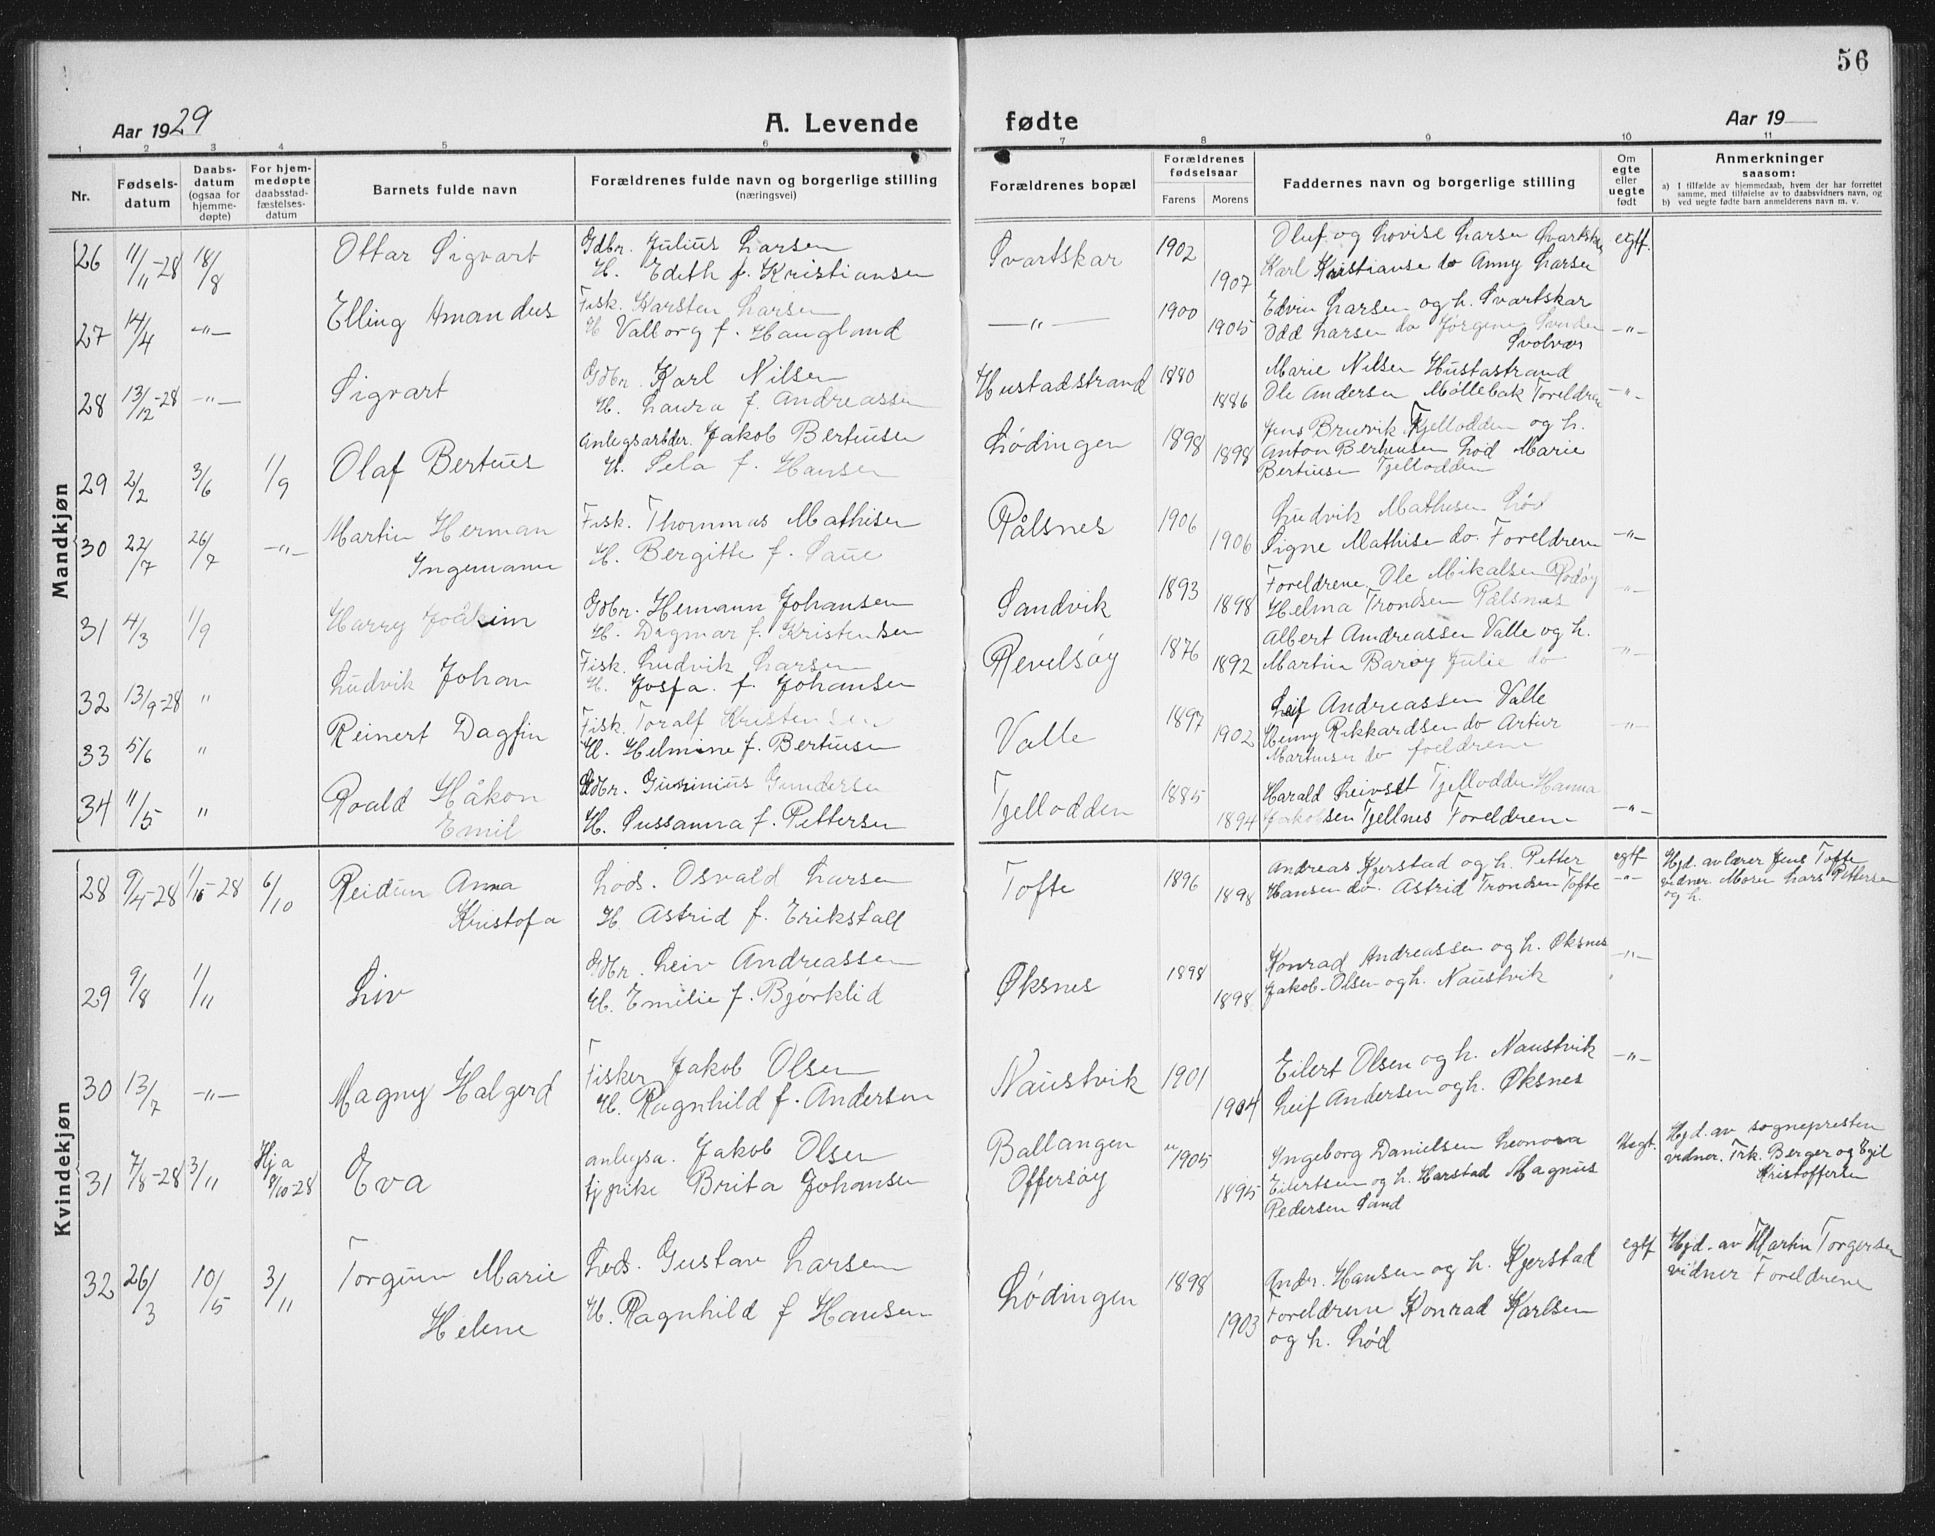 56
Aar 1929
A. Levende
fødte
Aar 19
1 2 3 4 5 6 7 8 9 10 11
Nr.
Fødsels-
datum
Daabs-
datum
(ogsaa for
hjemme-
døpte)
For hjem-
medøpte
daabsstad-
fæstelses-
datum
Barnets fulde navn
Forældrenes fulde navn og borgerlige stilling
(næringsvei)
Forældrenes bopæl
Forældrenes
fødselsaar
Farens Morens
Faddernes navn og borgerlige stilling
Om
egte
eller
uegte
født
Anmerkninger
saasom:
a) I tilfælde av hjemmedaab, hvem der har forrettet
samme, med tilføielse av to daabsvidners navn, og
b) ved uegte fødte barn anmelderens navn m. v.
Mandkjøn
26 11/11-28 18/8 Ottar Sigvart
Gdbr. Julius Larsen
H. Edith f. Kristiansen
Svartskar 1902 1907
Oluf og Lovise Larsen Svartskar
Karl Kristianse do Anny Larsen
egtf.
27 14/4 -"- Elling Amandus
Fisk. Karsten Larsen
H Valborg f. Haugland
-"- 1900 1905
Edvin Larsen og h. Svartskar
Odd Larsen do Jørgine
Svolvær
-"-
28 13/12-28 -"- Sigvart
Gdbr. Karl Nilsen
H. Laura f. Andreassen
Hustadstrand 1880 1886
Marie Nilsen Hustastrand
Ole Andersen Møllebak Foreldrene
-"-
29 2/2 3/6 1/9 Olaf Bertius
Anlegsarbdr. Jakob Bertiusen
H. Sela f. Hansen
Lødingen 1898 1898
Jens Bruvik Fjellodden og h.
Anton Bertiusen Lød Marie
Bertiusen Tjellodden
30 22/7 26/7 -"- Martin Herman
Ingemann
Fisk. Thommas Mathisen
H. Bergitte f. Saue
Rålsnes 1906 1906
Ludvik Mathisen Lød
Signe Mathise do. Foreldrene
-"-
31 4/3 1/9 Harry Joakim
Gdbr. Hemann Johansen
H. Dagmar f. Kristensen
Sandvik 1893 1898
Foreldrene, Ole Mikalsen Rodøy
Helma Trondsen Rålsnes
-"-
32 13/9-28 " Ludvik Johan
Fisk. Ludvik Larsen
H. Josfa. f. Johansen
Revelsøy 1876 1892
Albert Andreassen Valle og h.
Martin Barøy Julie do
-"-
33 5/6 " Reinert Dagfin
Fisk. Toralf Kristensen
H. Helmine f. Bertiusen
Valle 1897 1902
Leif Andreassen Valle
Henny Rikkardsen do Artur
Marthinsen do foreldrene
-"-
34 11/5 " Roald Håkon
Emil
Gdbr. Guninius Gundersen
H. Sussanna f. Pettersen
Tjellodden 1885 1894
Harald Leivset Tjellodden Hanna
Jakobsen Tjellnes Foreldrene
-"-
Kvindekjøn
28 9/4-28 1/10-28 6/10 Reidun Anna
Kristofa
Lods. Osvald Larsen
H. Astrid f. Erikstall
Tofte 1896 1898
Andreas Kjerstad og h. Petter
Hansen do. Astrid Trondsen Tofte
egtf
-"-
Hjd. av lærer Jens Tofte
vidner Moren Lars Pettersen
og h.
29 9/8 1/11 Liv
Gdbr. Leiv Andreassen
H. Emilie f. Bjørklid
Øksnes 1898 1898
Konrad Andreassen og h. Øksnes
Jakob Olsen og h. Naustvik
-"-
30 13/7 -"- Magny Halgerd
Fisker Jakob Olsen
H. Ragnhild f. Andersen
Naustvik 1901 1904
Eilert Olsen og h. Naustvik
Leif Andersen og h. Øksnes
-"-
31 7/8-28 3/11 Hja
9/10-28 Eva
anlegsa. Jakob Olsen
tj pike Brita Johansen
Ballangen
Offersøy
1905 1895
Ingeborg Danielsen Leonora
Eilertsen og h. Harstad Magnus
Pedersen Sand
Uegt.
Hjd. av sognepresten
vidner. Frk. Berger og Egil
Kristoffersen
32 26/3 10/5 3/11 Torgunn Marie
Helene
Lods. Gustav Larsen
H. Ragnhild f Hansen
Lødingen 1898 1903
Andr. Hansen og h. Kjerstad
Foreldrene Konrad Karlsen
og h. Lød
egtf
Hjd. av Martin Torgersen
vidner Foreldrene